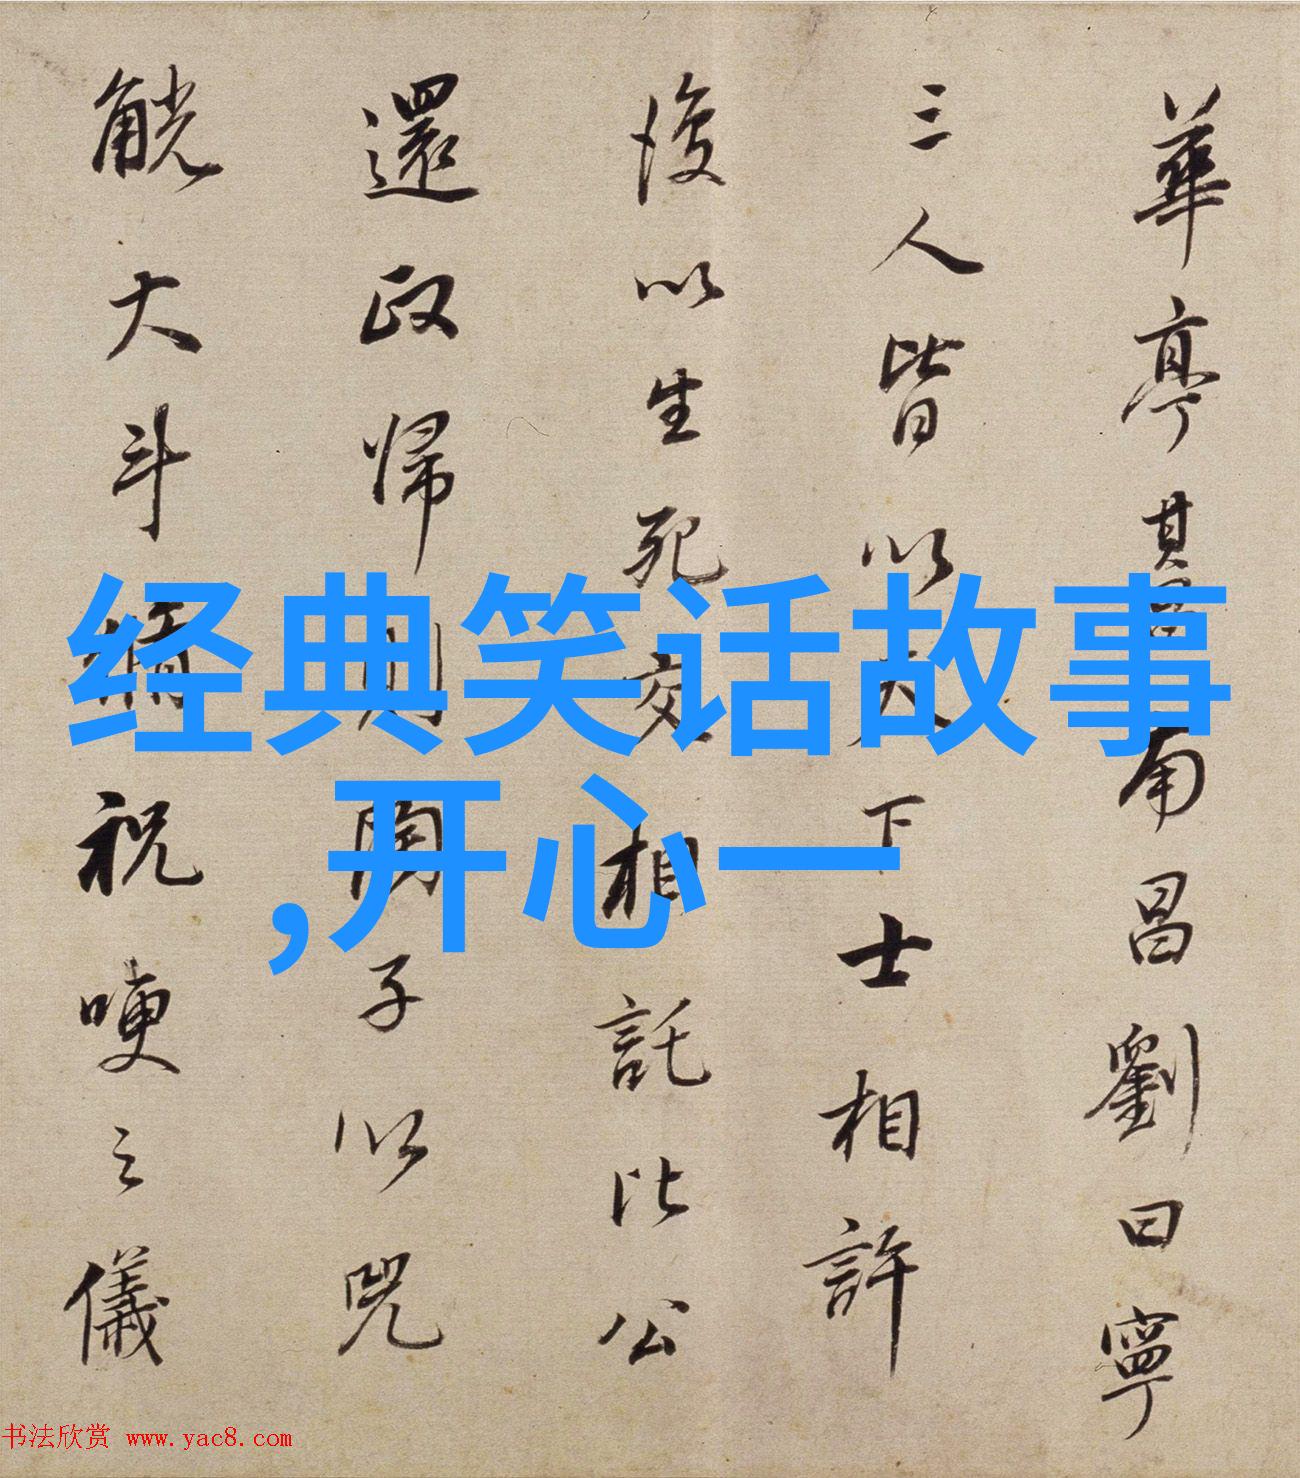 華亭其南昌劉曰寧
三人皆以天下士相許
後以生死交相託比公
還政歸則陶子以兕
觥大斗祝哽之儀
经典笑话故事
,开心一
书法欣赏 www.yac8.com